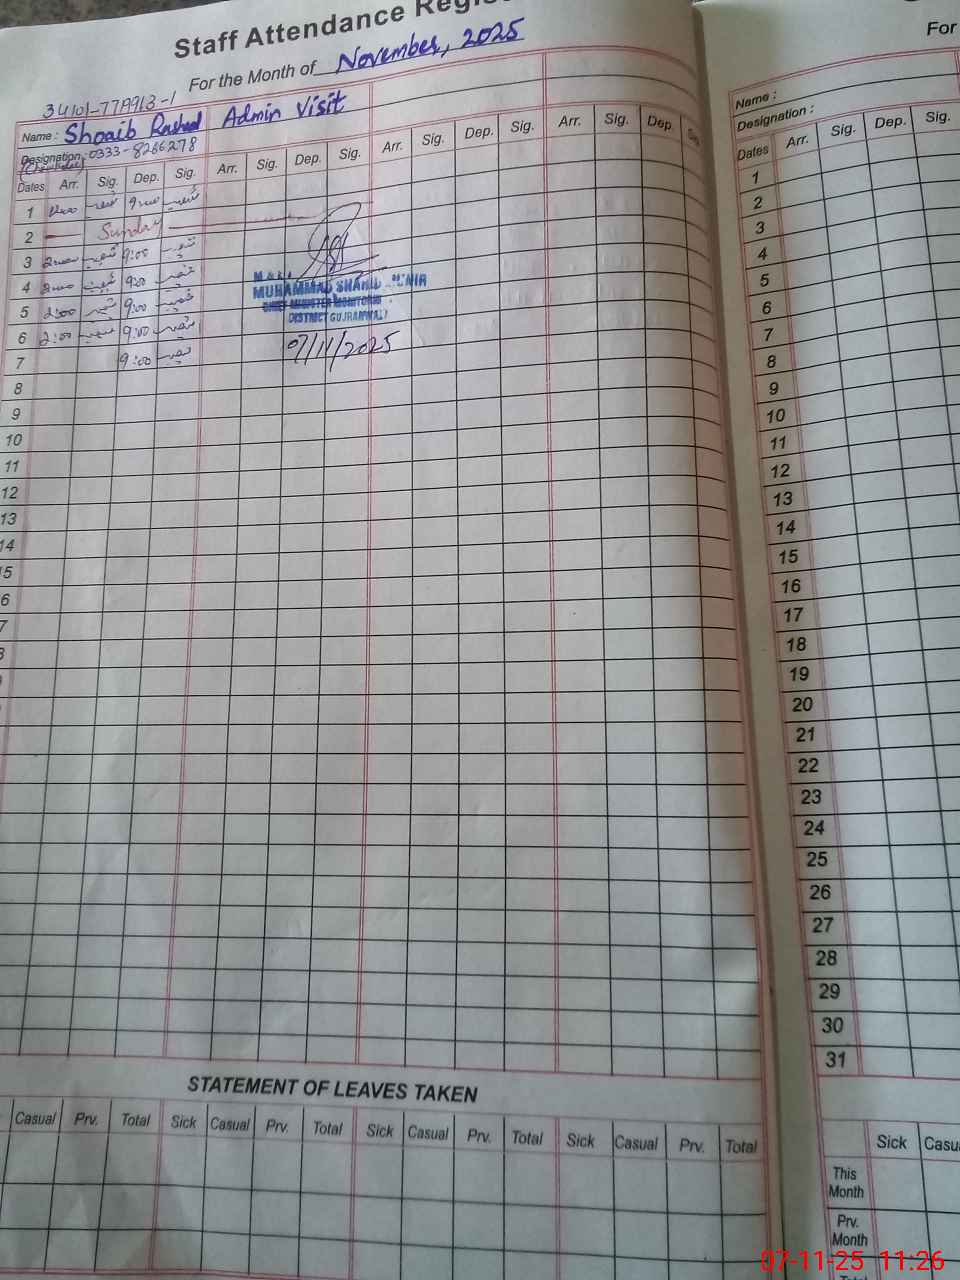 Staff Attendance Regis
For the Month of November, 2025
Name : Shoaib Rasheed Admin Visit
Designation : 0333-8266278
Dates Arr. Sig. Dep. Sig. Arr. Sig. Dep. Sig. Arr. Sig. Dep. Sig. Arr. Sig. Dep. Sig.
1 شعیب 9:00 شعیب
2 Sunday
3 2:00 شعیب 9:00 شعیب
4 2:00 شعیب 9:00 شعیب
5 2:00 شعیب 9:00 شعیب
6 2:00 شعیب 9:00 شعیب
7 9:00 شعیب
MUHAMMAD SHAHID MUNIR
CHIEF MINISTER MONITORING
DISTRICT GUJRANWALA
07/11/2025
8
9
10
11
12
13
14
5
6
7
STATEMENT OF LEAVES TAKEN
Casual Prv. Total Sick Casual Prv. Total Sick Casual Prv. Total Sick Casual Prv. Total
For
Name :
Designation :
Dates Arr. Sig. Dep. Sig.
1
2
3
4
5
6
7
8
9
10
11
12
13
14
15
16
17
18
19
20
21
22
23
24
25
26
27
28
29
30
31
Sick Casu
This Month
Prv. Month
07-11-25 11:26